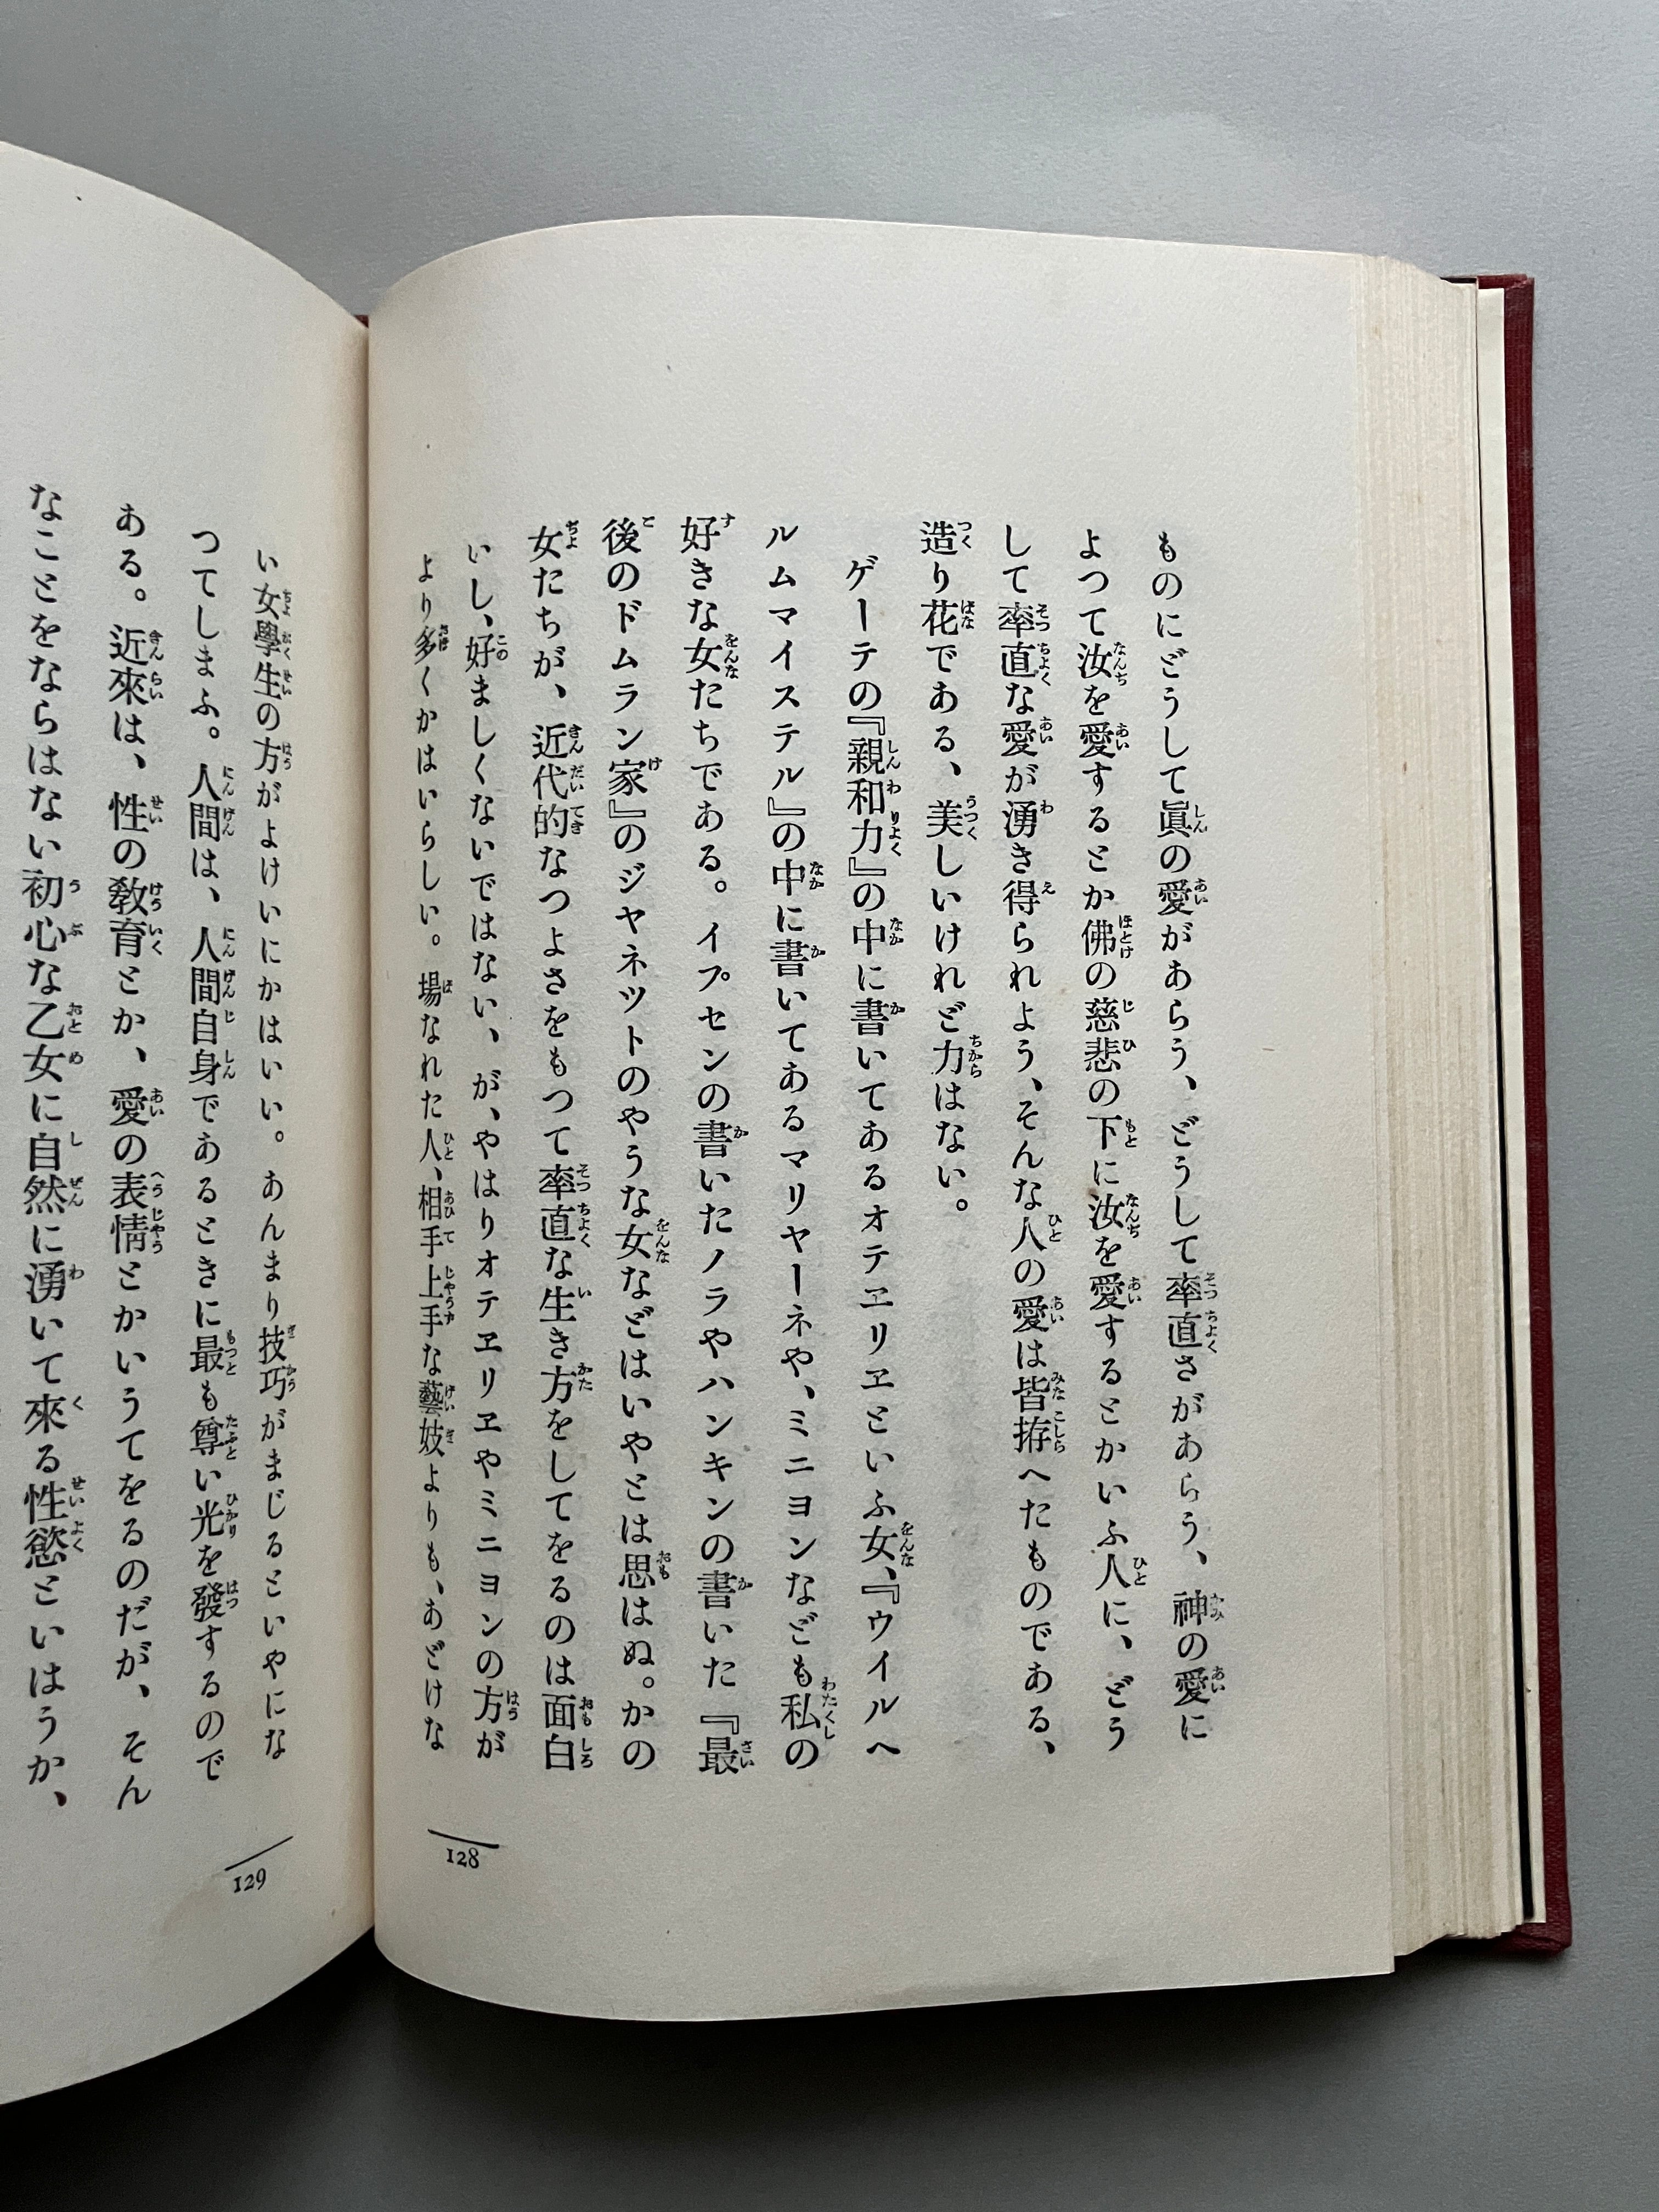 ものにどうして眞の愛があらう、どうして率直さがあらう、神の愛に
よつて汝を愛するとか佛の慈悲の下に汝を愛するとかいふ人に、どう
して率直な愛が湧き得られよう、そんな人の愛は皆拵へたものである、
造り花である、美しいけれど力はない。
ゲーテの『親和力』の中に書いてあるオテヱリヱといふ女、『ウイルヘ
ルムマイステル』の中に書いてあるマリヤーネや、ミニヨンなども私の
好きな女たちである。イプセンの書いたノラやハンキンの書いた『最
後のドムラン家』のジヤネツトのやうな女などはいやとは思はぬ。かの
女たちが、近代的なつよさをもつて率直な生き方をしてをるのは面白
いし、好ましくないではない、が、やはりオテヱリヱやミニヨンの方が
より多くかはいらしい。場なれた人、相手上手な藝妓よりも、あどけな
128
い女學生の方がよけいにかはいい。あんまり技巧がまじるといやにな
つてしまふ。人間は、人間自身であるときに最も尊い光を發するので
ある。近來は、性の敎育とか、愛の表情とかいうてをるのだが、そん
なことをならはない初心な乙女に自然に湧いて來る性慾といはうか、
129